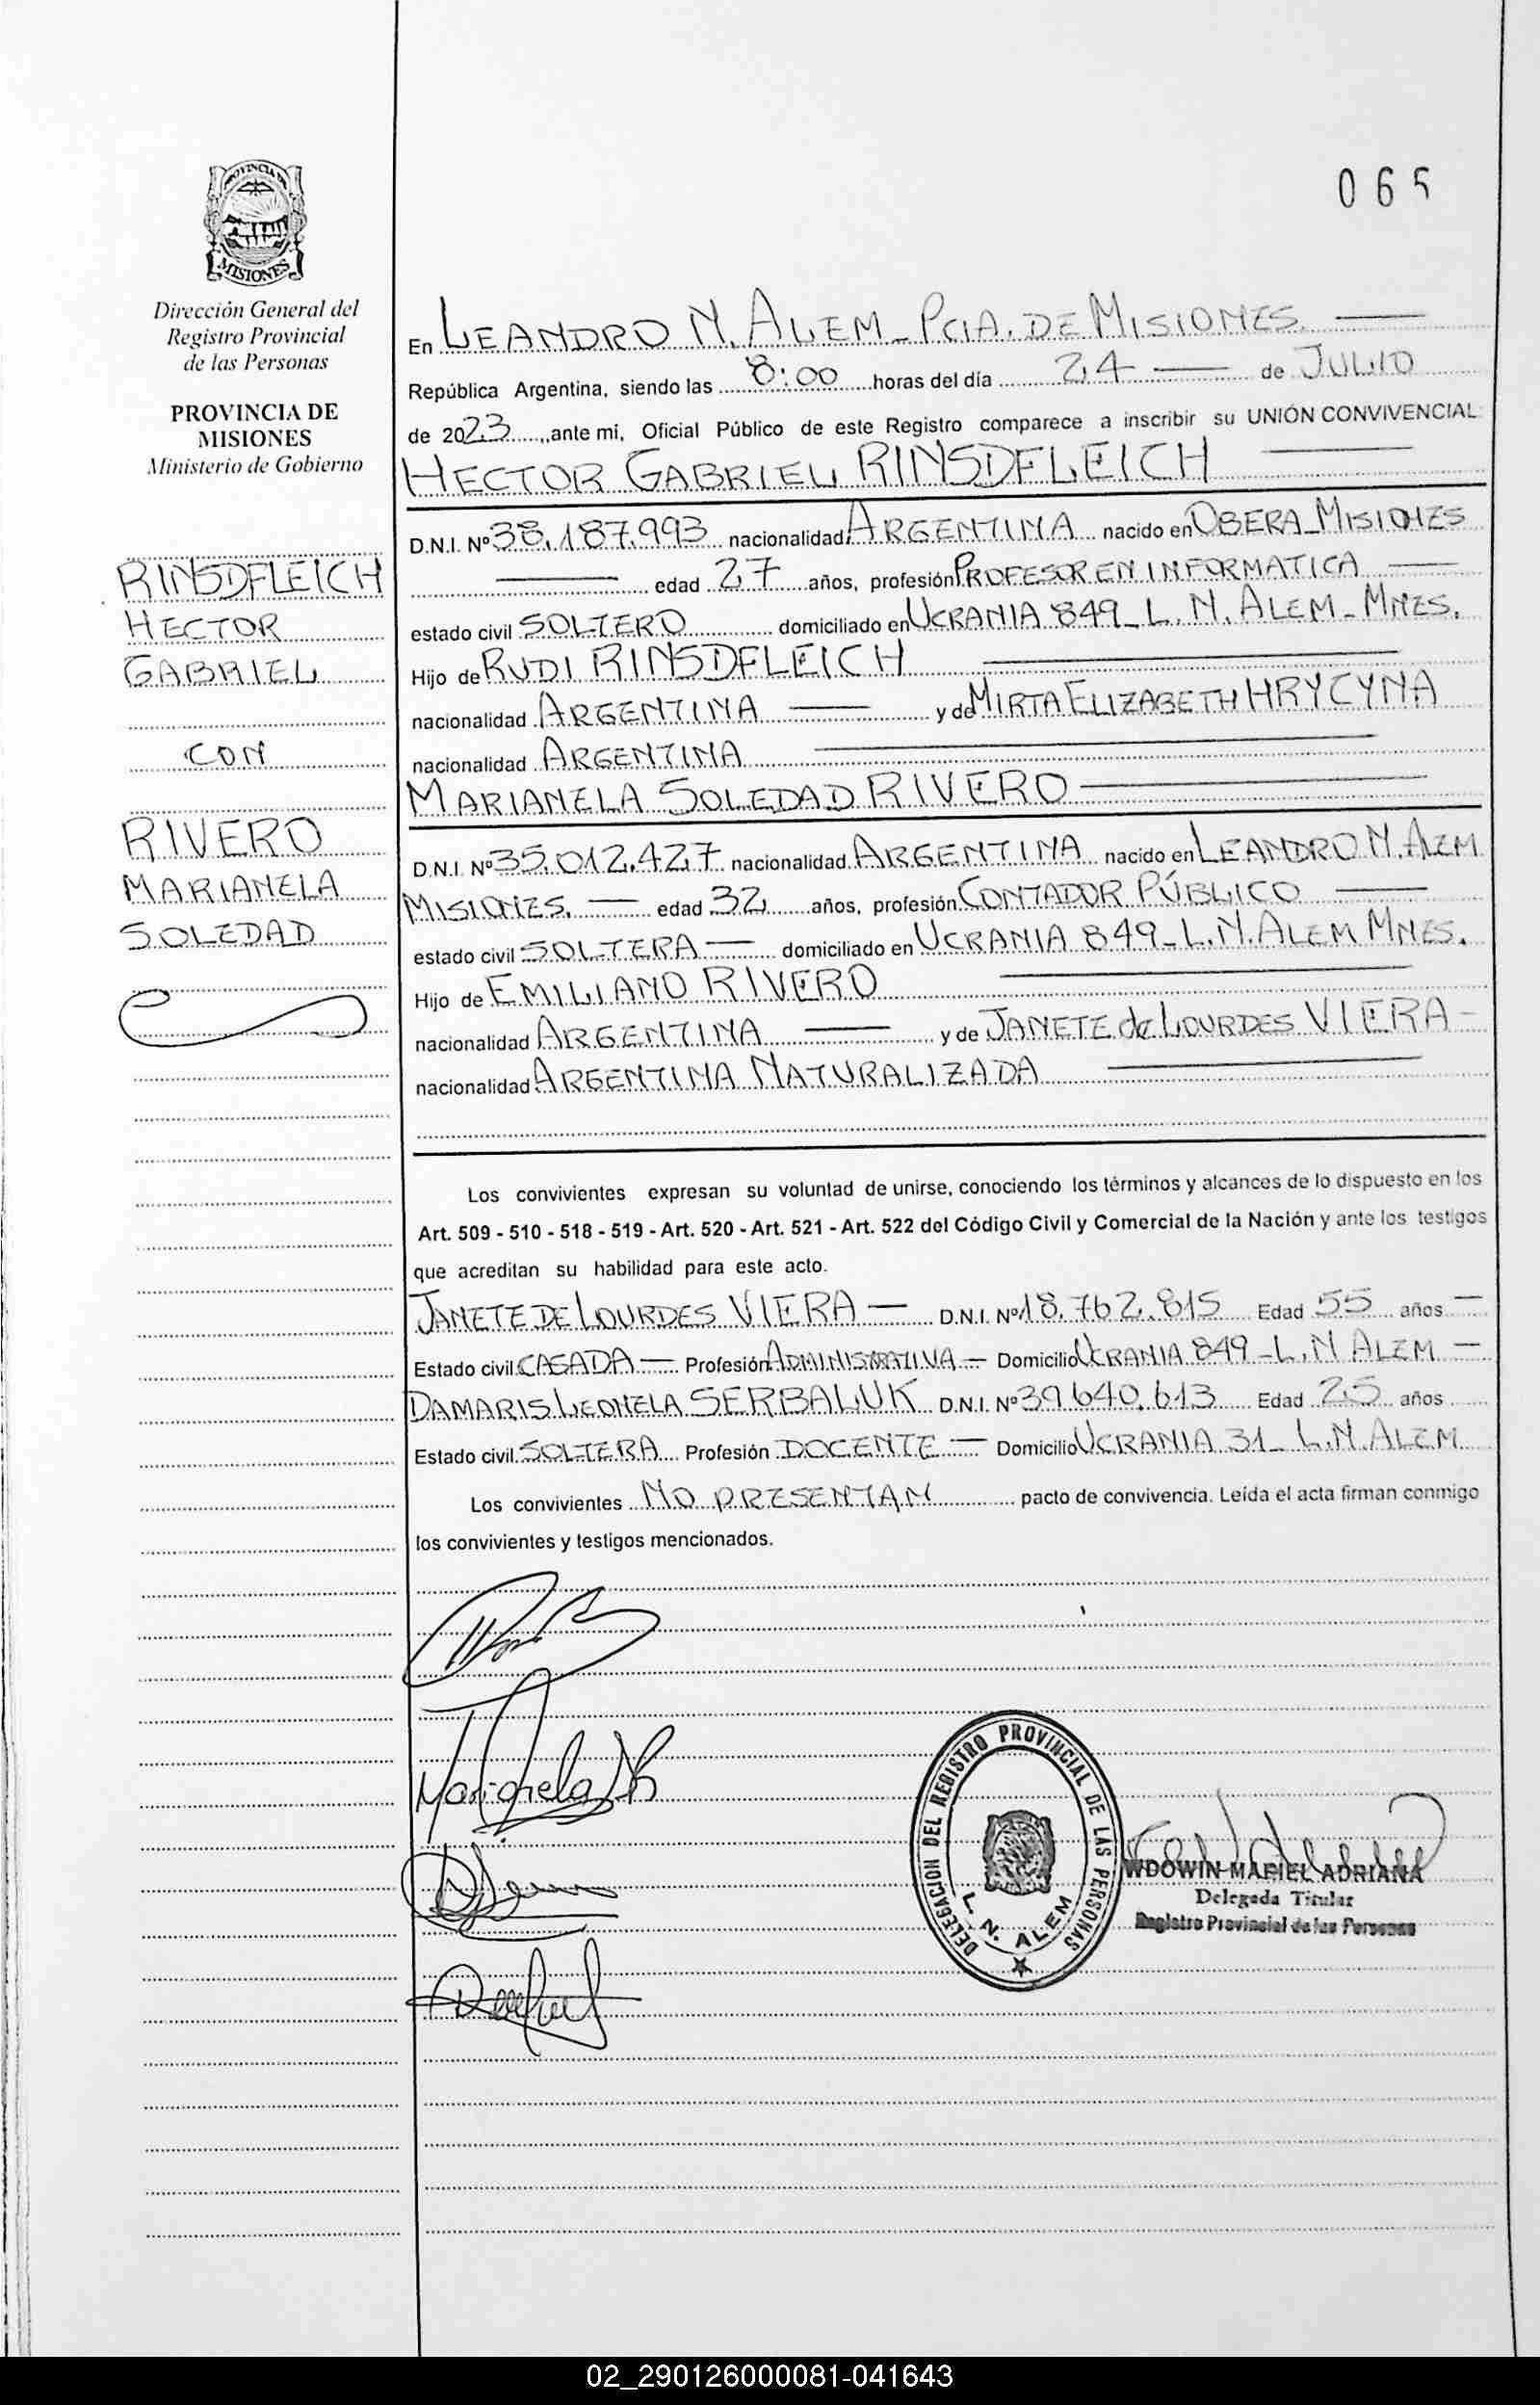 065
PROVINCIA DE
MISIONES
Dirección General del
Registro Provincial
de las Personas
PROVINCIA DE
MISIONES
Ministerio de Gobierno
RINSDFLEICH
HECTOR
GABRIEL
CON
RIVERO
MARIANELA
SOLEDAD
En LEANDRO N. ALEM - PCIA. DE MISIONES.
República Argentina, siendo las 8:00 horas del día 24 de JULIO
de 2023, ante mi, Oficial Público de este Registro comparece a inscribir su UNIÓN CONVIVENCIAL
HECTOR GABRIEL RINSDFLEICH
D.N.I. Nº 38.187.993 nacionalidad ARGENTINA nacido en OBERA - MISIONES
edad 27 años, profesión PROFESOR EN INFORMATICA
estado civil SOLTERO domiciliado en UCRANIA 849 - L. N. ALEM - MNES.
Hijo de RUDI RINSDFLEICH
nacionalidad ARGENTINA y de MIRTA ELIZABETH HRYCYNA
nacionalidad ARGENTINA
MARIANELA SOLEDAD RIVERO
D.N.I. Nº 35.012.427 nacionalidad ARGENTINA nacido en LEANDRO N. ALEM
MISIONES. edad 32 años, profesión CONTADOR PÚBLICO
estado civil SOLTERA domiciliado en UCRANIA 849 - L. N. ALEM MNES.
Hijo de EMILIANO RIVERO
nacionalidad ARGENTINA y de JANETE de LOURDES VIERA
nacionalidad ARGENTINA NATURALIZADA
Los convivientes expresan su voluntad de unirse, conociendo los términos y alcances de lo dispuesto en los
Art. 509 - 510 - 518 - 519 - Art. 520 - Art. 521 - Art. 522 del Código Civil y Comercial de la Nación y ante los testigos
que acreditan su habilidad para este acto.
JANETE DE LOURDES VIERA D.N.I. Nº 18.762.815 Edad 55 años
Estado civil CASADA Profesión ADMINISTRATIVA Domicilio UCRANIA 849 - L. N ALEM
DAMARIS LEONELA SERBALUK D.N.I. Nº 39.640.613 Edad 25 años
Estado civil SOLTERA Profesión DOCENTE Domicilio UCRANIA 31 - L.N. ALEM
Los convivientes NO PRESENTAN pacto de convivencia. Leída el acta firman conmigo
los convivientes y testigos mencionados.
DELEGACION DEL REGISTRO PROVINCIAL DE LAS PERSONAS
L. N. ALEM
WDOWIN MARIEL ADRIANA
Delegada Titular
Registro Provincial de las Personas
02_290126000081-041643